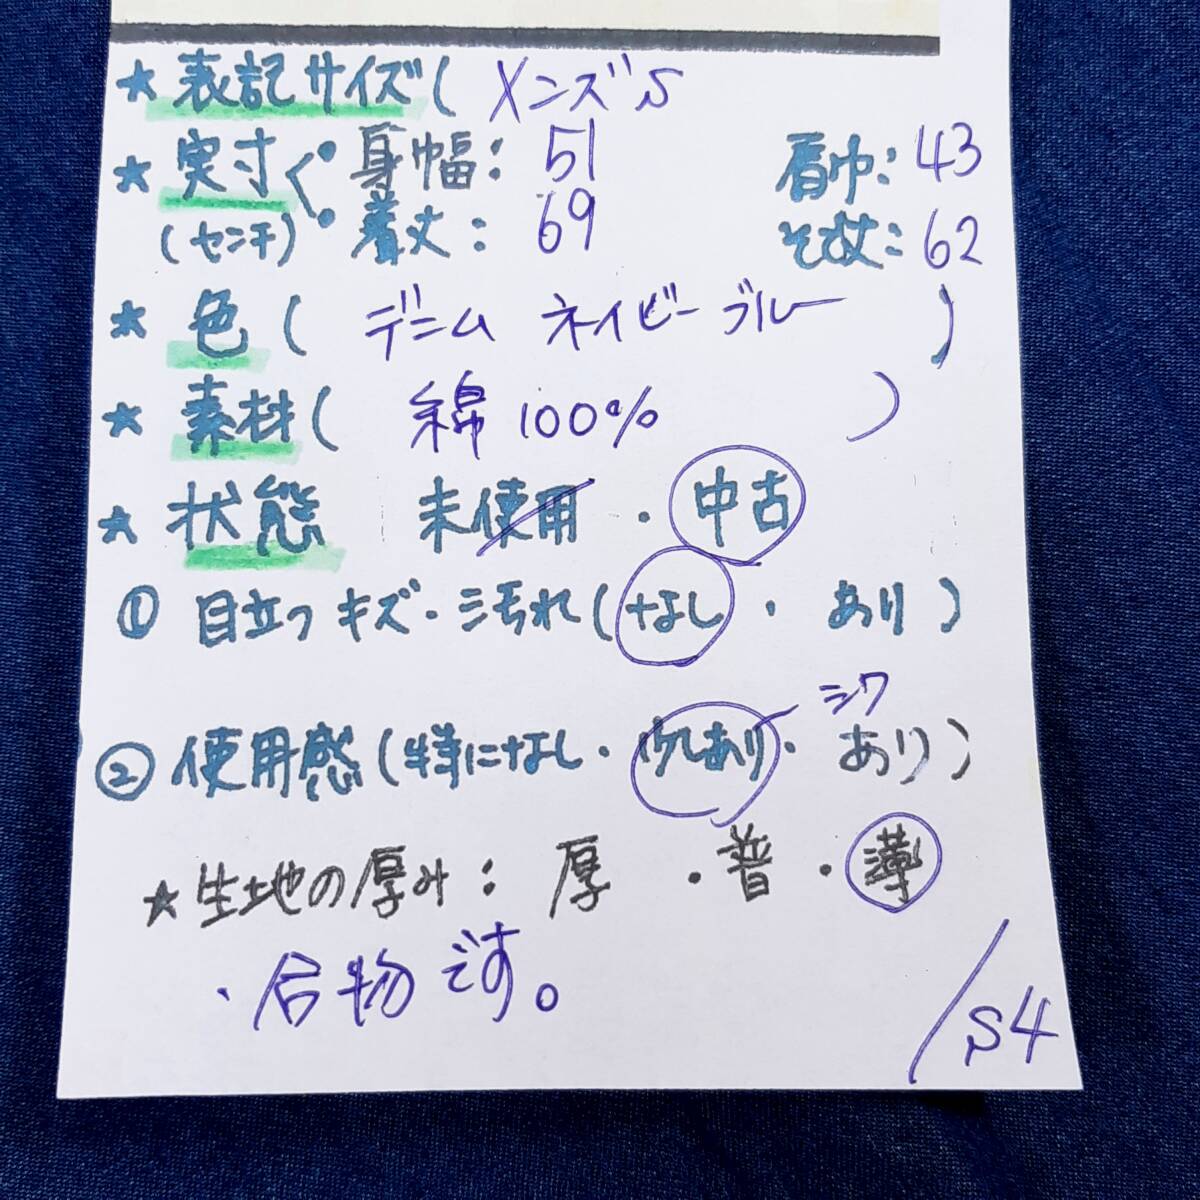 ★表記サイズ( メンズS
★実寸く・身幅: 51 肩巾: 43
(センチ)・着丈: 69 そで丈: 62
★色( デニム ネイビーブルー )
★素材( 綿 100% )
★状態 未使用・中古
① 目立つキズ・汚れ(なし・あり)
シワ
② 使用感(特になし・少しあり・あり)
★生地の厚み: 厚・普・薄
・合物です。
/S4